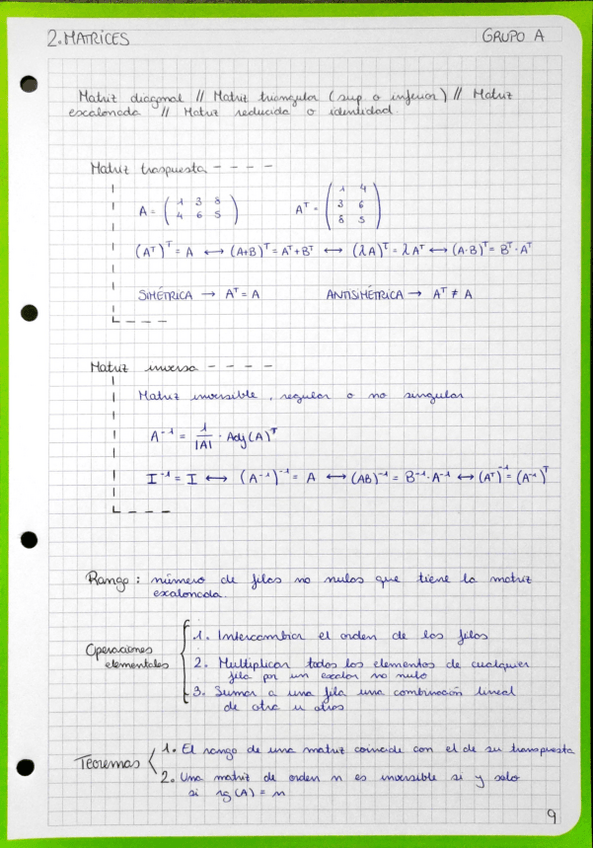 2. MATRICES
GRUPO A
Matriz diagonal // Matriz triangular (sup o inferior) // Matriz
escalonada // Matriz reducida o identidad.
Matriz traspuesta - - - -
A = ( 1 3 8 / 4 6 5 ) Aᵀ = ( 1 4 / 3 6 / 8 5 )
(Aᵀ)ᵀ = A ↔ (A+B)ᵀ = Aᵀ + Bᵀ ↔ (λA)ᵀ = λAᵀ ↔ (A·B)ᵀ = Bᵀ·Aᵀ
SIMÉTRICA → Aᵀ = A ANTISIMÉTRICA → Aᵀ ≠ A
Matriz inversa - - - -
Matriz inversible, regular o no singular
A⁻¹ = 1/|A| · Adj(A)ᵀ
I⁻¹ = I ↔ (A⁻¹)⁻¹ = A ↔ (AB)⁻¹ = B⁻¹·A⁻¹ ↔ (Aᵀ)⁻¹ = (A⁻¹)ᵀ
Rango: número de filas no nulas que tiene la matriz
escalonada.
Operaciones
elementales
1. Intercambiar el orden de las filas
2. Multiplicar todos los elementos de cualquier
fila por un escalar no nulo
3. Sumar a una fila una combinación lineal
de otra u otras
Teoremas
1. El rango de una matriz coincide con el de su transpuesta
2. Una matriz de orden n es inversible si y solo
si rg (A) = n
9